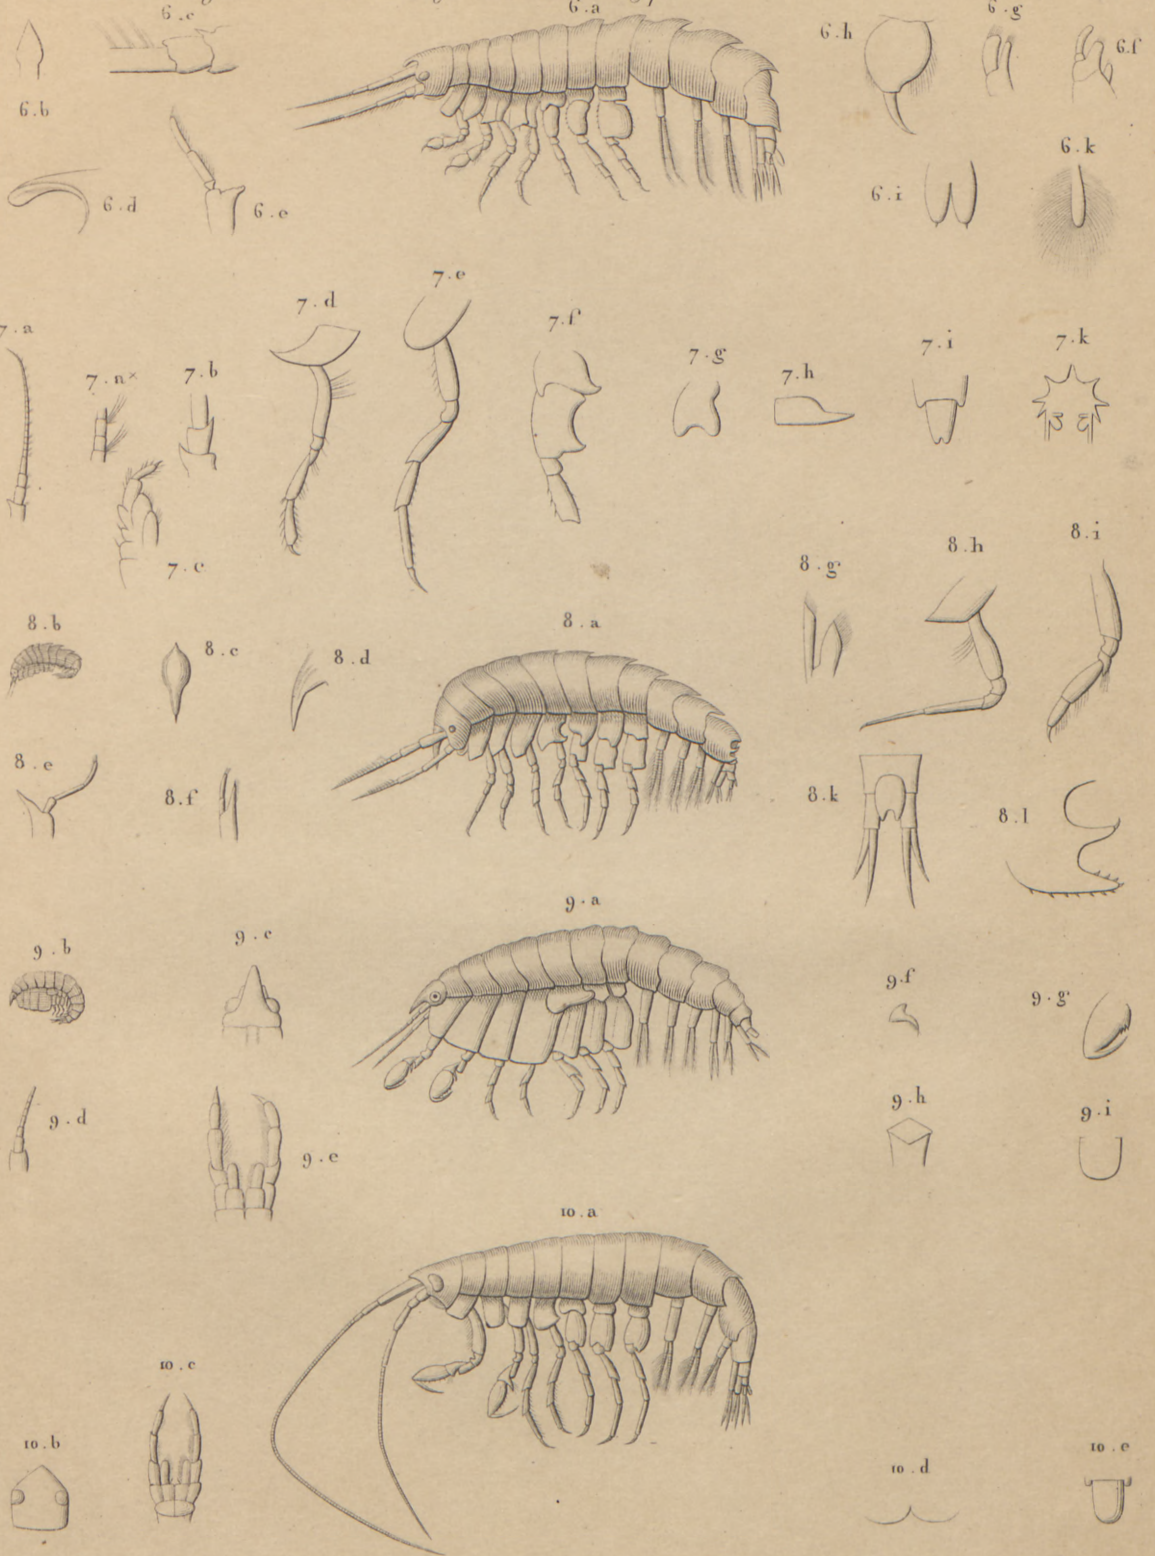 6.c
6.a
6.h
6.g
6.f
6.b
6.d
6.e
6.i
6.k
7.a
7.n×
7.b
7.d
7.e
7.f
7.g
7.h
7.i
7.k
7.c
8.b
8.c
8.d
8.a
8.g
8.h
8.i
8.e
8.f
8.k
8.l
9.a
9.b
9.c
9.f
9.g
9.d
9.e
9.h
9.i
10.a
10.c
10.b
10.d
10.e